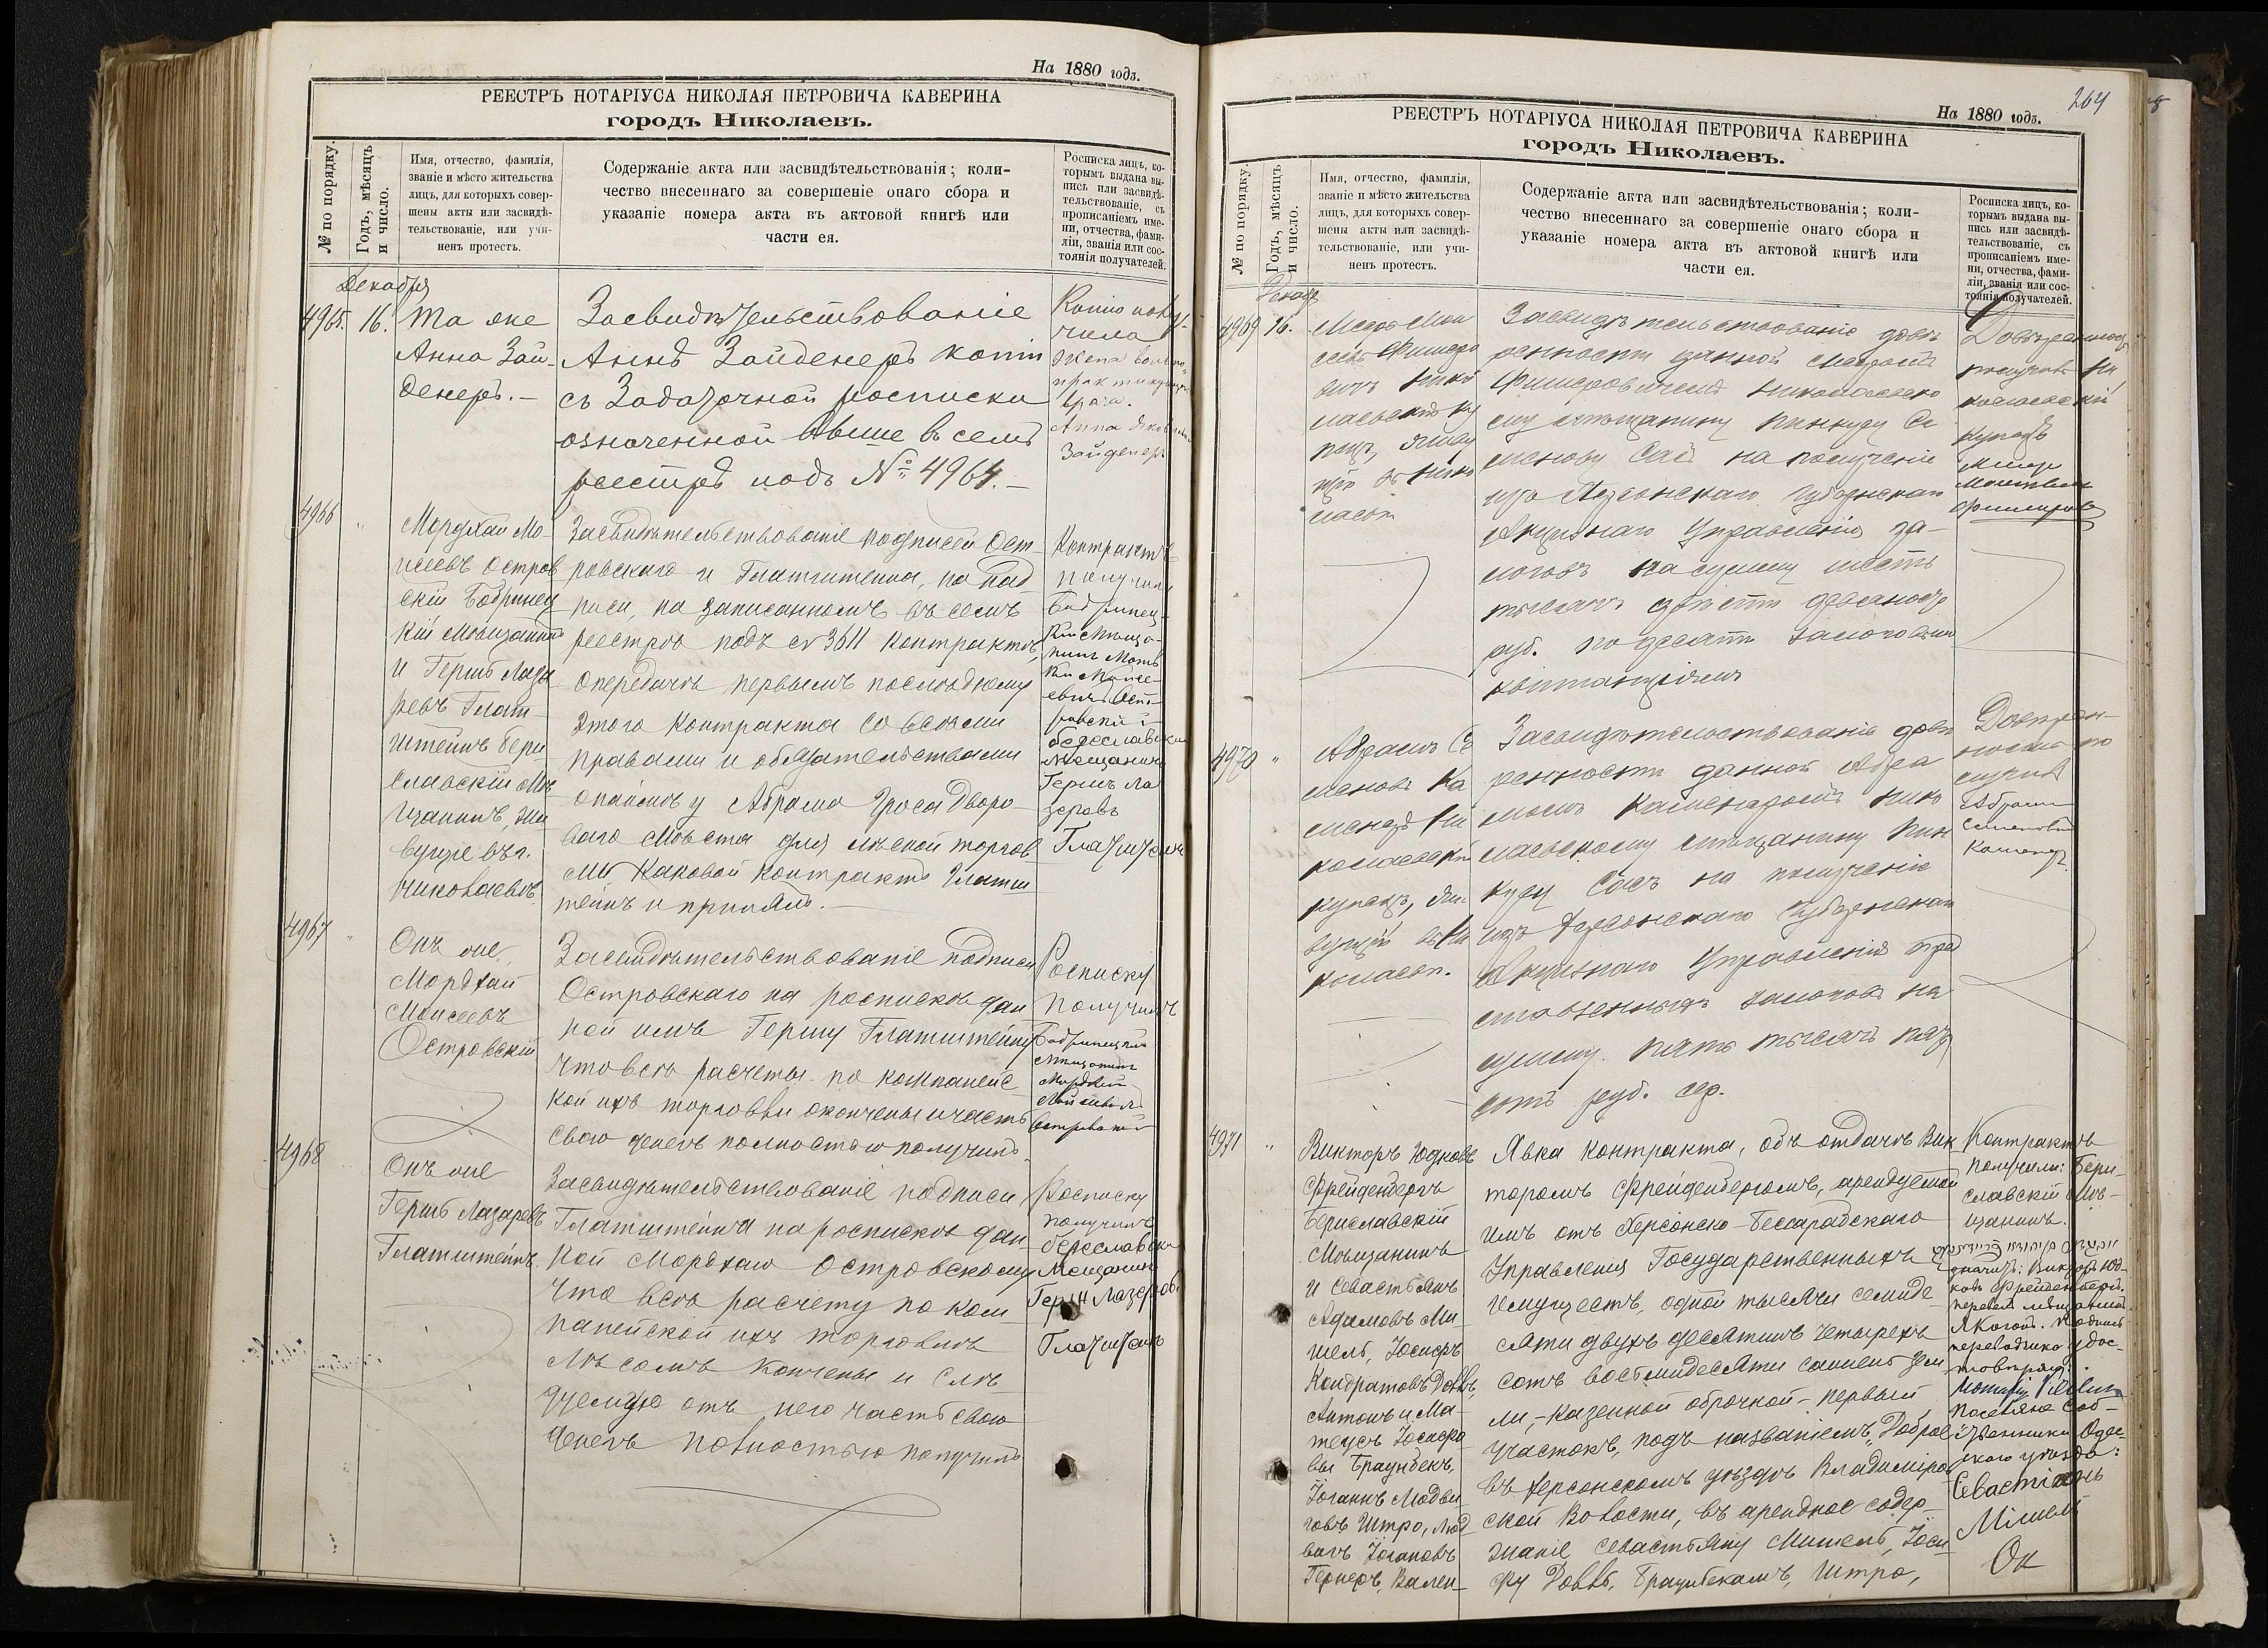 На 1880 годъ.
РЕЕСТРЪ НОТАРІУСА НИКОЛАЯ ПЕТРОВИЧА КАВЕРИНА
городъ Николаевъ.
№ по порядку.
Годъ, мѣсяцъ
и число.
Имя, отчество, фамилія,
званіе и мѣсто жительства
лицъ, для которыхъ совер-
шены акты или засвидѣ-
тельствованіе, или учи-
ненъ протестъ.
Содержаніе акта или засвидѣтельствованія; коли-
чество внесеннаго за совершеніе онаго сбора и
указаніе номера акта въ актовой книгѣ или
части ея.
Росписка лицъ, ко-
торымъ выдана вы-
пись или засвидѣ-
тельствованіе, съ
прописаніемъ име-
ни, отчества, фами-
ліи, званія или сос-
тоянія получателей.
Декабря
4965. 16.
Та же
Анна Зай-
денеръ.-
Засвидѣтельствованіе
Аннѣ Зайденеръ копіи
съ Задаточной росписки
означенной выше въ семъ
реестрѣ подъ № 4964.-
Копію полу-
чила
жена вольно-
практикующаго
врача.
Анна
Зайденеръ
4966 "
Мордхай Мо-
исеевъ Остров
скій Бобринец
кій мѣщанинъ
и Гершъ Лаза
ревъ Глат-
штейнъ Бери
славскій мѣ
щанинъ, жи
вущіе въ г.
Николаевѣ
Засвидѣтельствованіе подписей Ост-
ровскаго и Глатштейна, на над-
писи, на записанномъ въ семъ
реестрѣ подъ № 3611 контрактѣ,
о передачѣ первымъ послѣднему
этого контракта со всѣми
правами и обязательствами
о наймѣ у Абрама Гроса дворо-
ваго мѣста для лѣсной торгов
ли каковой контрактъ Глатш
тейнъ и принялъ.-
Контрактъ
получили
Бобринец-
кій мѣща-
нинъ
Мойсе-
евичъ Ост-
ровскій
береславскій
мещанинъ
Гершъ Ла
зеревъ
Глатштейнъ
4967 "
Онъ же
Мордхай
Моисеевъ
Островскій
Засвидѣтельствованіе подписи
Островскаго на роспискѣ дан
ной имъ Гершу Глатштейну
что всѣ расчеты по компанейс
кой ихъ торговли окончены и часть
свою денегъ полностью получилъ.
Росписку
получилъ
Бобринецкій
мѣщанинъ
Мордхай
Островскій
4968
Онъ же
Гершъ Лазаревъ
Глатштейнъ.
Засвидѣтельствованіе подписи
Глатштейна на роспискѣ дан
ной Мордхаю Островскому
что всѣ расчеты по ком
панейской ихъ торговлѣ
лѣсомъ кончены и слѣ
дуемую отъ него часть свою
денегъ полностью получилъ
Росписку
получилъ
береславскій
мещанинъ
Герш Лазеровъ
Глатштейнъ
264
На 1880 годъ.
РЕЕСТРЪ НОТАРІУСА НИКОЛАЯ ПЕТРОВИЧА КАВЕРИНА
городъ Николаевъ.
№ по порядку.
Годъ, мѣсяцъ
и число.
Имя, отчество, фамилія,
званіе и мѣсто жительства
лицъ, для которыхъ совер-
шены акты или засвидѣ-
тельствованіе, или учи-
ненъ протестъ.
Содержаніе акта или засвидѣтельствованія; коли-
чество внесеннаго за совершеніе онаго сбора и
указаніе номера акта въ актовой книгѣ или
части ея.
Росписка лицъ, ко-
торымъ выдана вы-
пись или засвидѣ-
тельствованіе, съ
прописаніемъ име-
ни, отчества, фами-
ліи, званія или сос-
тоянія получателей.
Декабр
4969 16.
Фишеро
вичъ Нико
лаевскій ку
пецъ, живу
щій въ Нико
лаевѣ
Засвидѣтельствованіе довѣ
ренности данной
Фишеровичемъ Николаевско
му мѣщанину Пинкусу Се
менову Саѣ на полученіе
изъ Херсонскаго Губернскаго
Акцизнаго Управленія за-
логовъ на сумму шесть
тысячъ двѣсти девяносто
руб. по десяти залоговымъ
квитанціямъ
Довѣренность
получилъ Ни
колаевскій
купецъ
4970 "
Абрамъ Се
меновъ Ка
менеръ Ни
колаевскій
купецъ, жи-
вущій въ Ни
колаевѣ.
Засвидѣтельствованіе довѣ
ренности данной Абра
момъ Каменаромъ Нико
лаевскому мѣщанину Пин
кусу Саѣ на полученіе
изъ Херсонскаго Губернскаго
Акцизнаго Управленія пред
ставленныхъ залоговъ на
сумму пять тысячъ пять
сотъ руб. сер.
Довѣрен-
ность по
лучилъ
Абрамъ
Семеновъ
4971 "
Викторъ Юдковъ
Фрейденбергъ
Бериславскій
мѣщанинъ
и Севастьянъ
Адамовъ Ми-
шель, Іосифъ
Кондратовъ Доллъ,
Антонъ и Ма-
теусъ Іосифо
вы Браунбекъ,
Іоганнъ Людви
говъ Штро, Люд
вигъ Іогановъ
Гернеръ, Вален-
Явка контракта, объ отдачѣ Вик
торомъ Фрейденбергомъ, арендуемой
имъ отъ Херсонско-Бессарабскаго
Управленія Государственныхъ
имуществъ, одной тысячи семиде-
сяти двухъ десятинъ четырехъ
сотъ восьмидесяти сажень зем
ли,-казенной оброчной-первый
участокъ, подъ названіемъ „Доброе
въ Херсонскомъ уѣздѣ Владиміров
ской волости, въ арендное содер-
жаніе Севастьяну Мишель, Іоси-
фу Доллъ, Браунбекамъ, Штро,
Контрактъ
получили: Бери-
славскій мѣ-
щанинъ.
значитъ: Викторъ Юд-
ковъ Фрейденбергъ.
перевелъ мѣщанинъ
Я. Когонъ. Подпись
переводчика удос-
товѣряю:
Поселяне соб-
ственники Одес-
скаго уѣзда:
Севастіянъ
Мишель